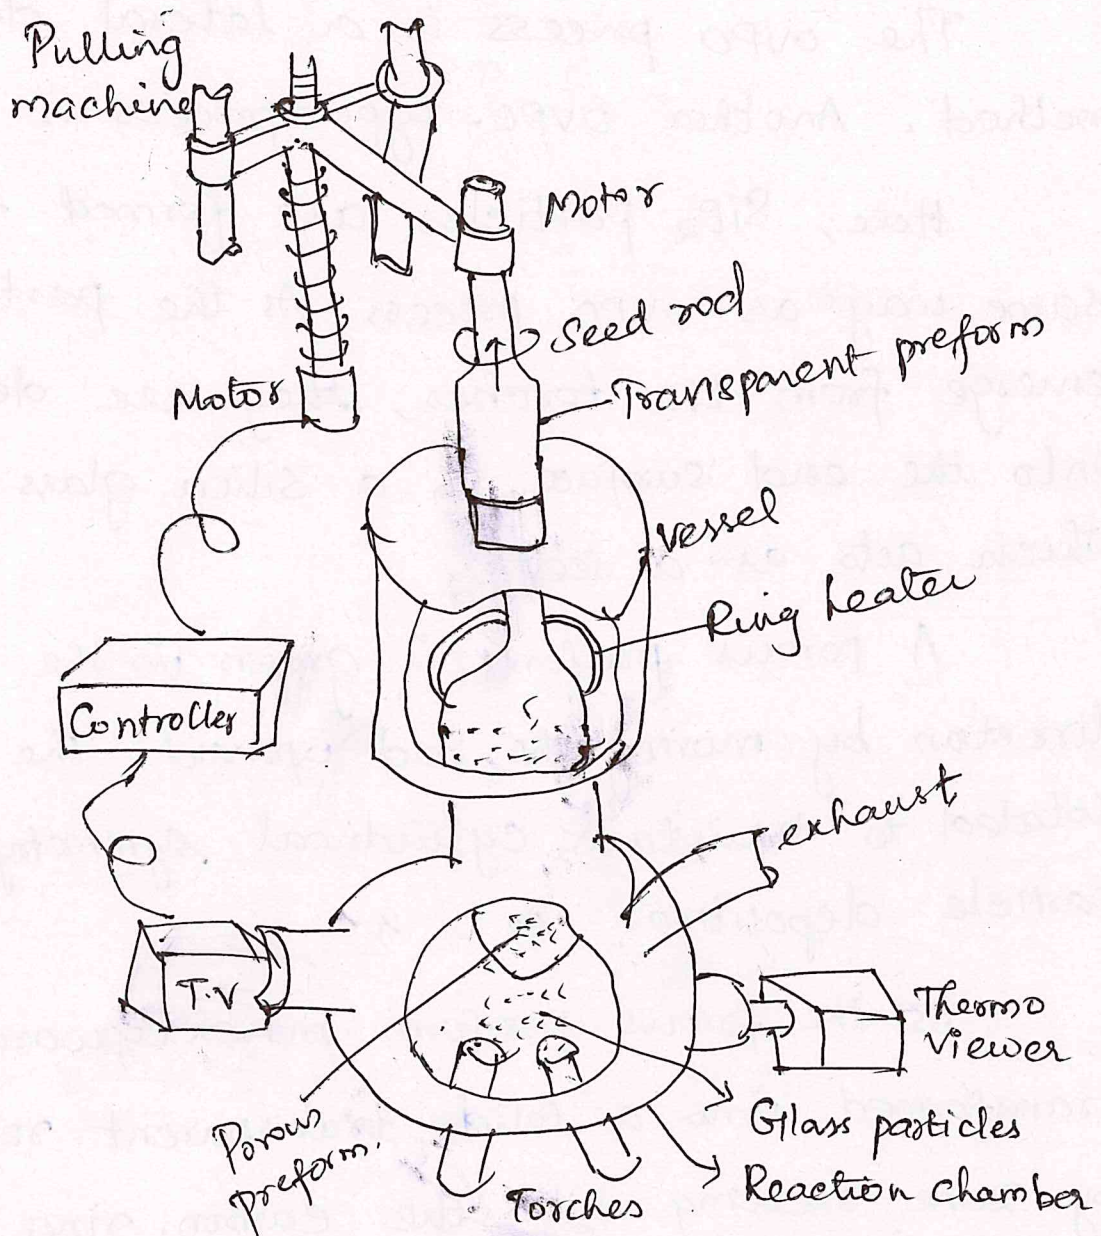 Pulling
machine
Motor
Seed rod
Transparent preform
Motor
vessel
Ring heater
Controller
exhaust
T.V
Thermo
Viewer
Porous
preform.
Glass particles
Reaction chamber
Torches